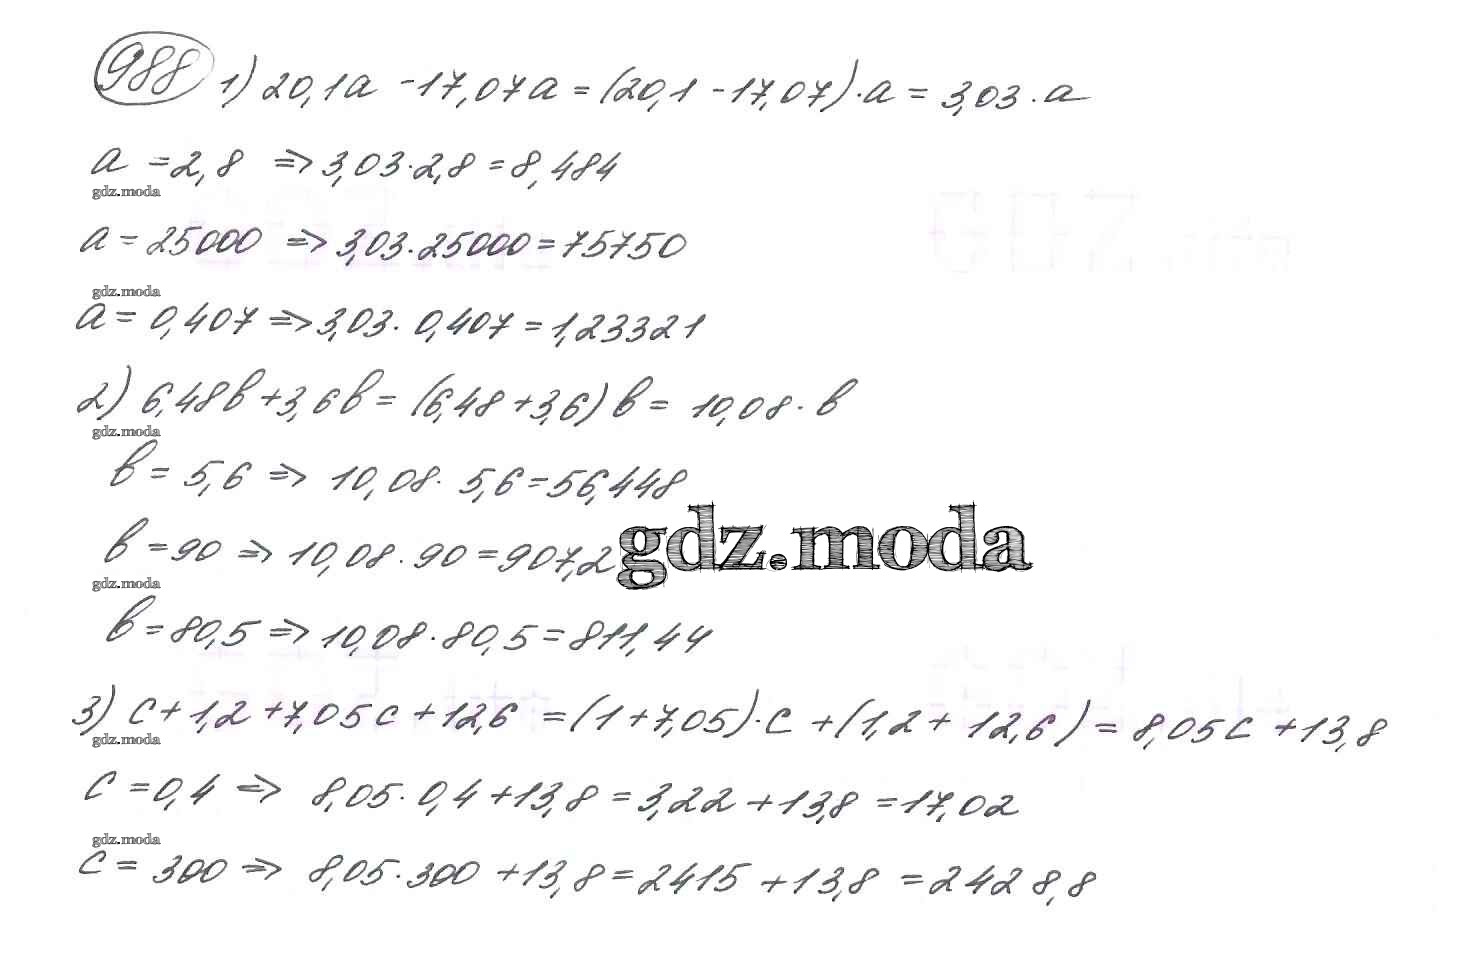 988 1) 20,1a - 17,07a = (20,1 - 17,07)·a = 3,03·a
a = 2,8 => 3,03·2,8 = 8,484
gdz.moda
a = 25000 => 3,03·25000 = 75750
gdz.moda
a = 0,407 => 3,03·0,407 = 1,23321
2) 6,48в + 3,6в = (6,48 + 3,6)в = 10,08·в
gdz.moda
в = 5,6 => 10,08·5,6 = 56,448
gdz.moda
в = 90 => 10,08·90 = 907,2
gdz.moda
в = 80,5 => 10,08·80,5 = 811,44
3) c + 1,2 + 7,05c + 12,6 = (1 + 7,05)·c + (1,2 + 12,6) = 8,05c + 13,8
gdz.moda
c = 0,4 => 8,05·0,4 + 13,8 = 3,22 + 13,8 = 17,02
gdz.moda
c = 300 => 8,05·300 + 13,8 = 2415 + 13,8 = 2428,8